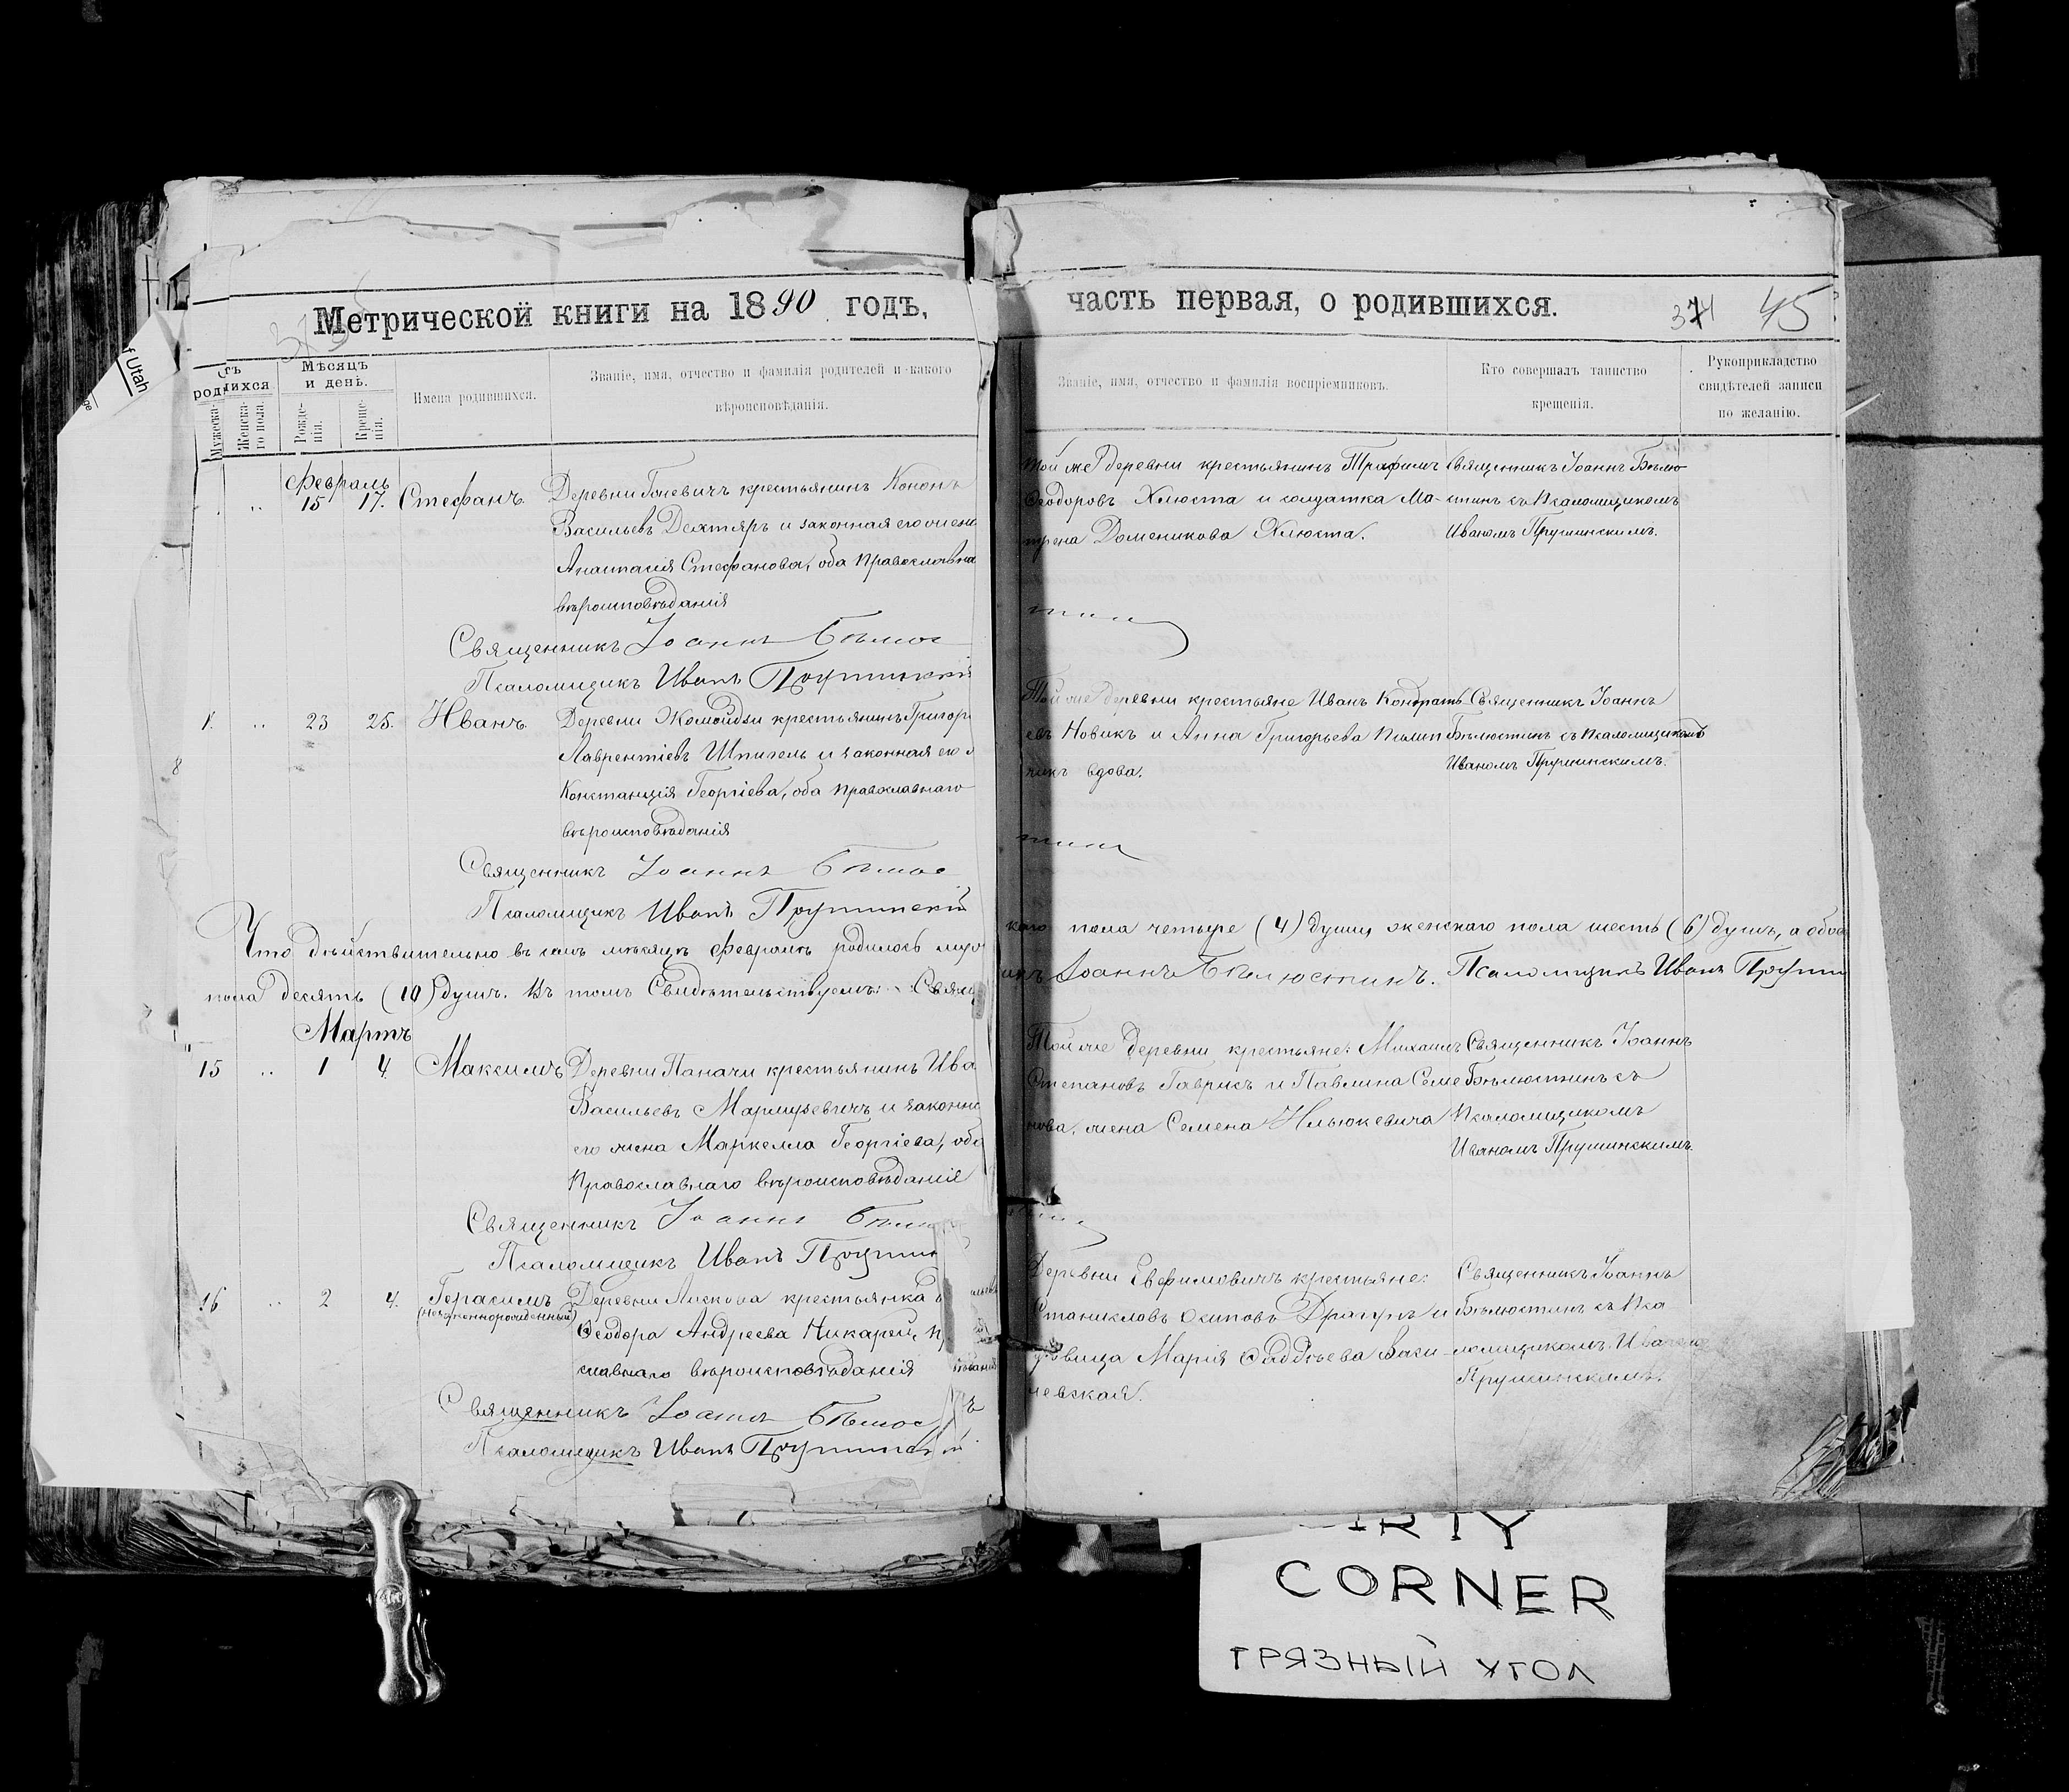 Метрической книги на 1890 годъ,
часть первая, о родившихся.
374 45
родившихся
Мѣсяцъ и день.
Мужеска-
Женска-го пола.
Рожде-нія.
Креще-нія.
Имена родившихся.
Званіе, имя, отчество и фамилія родителей и какого
вѣроисповѣданія.
Званіе, имя, отчество и фамилія воспріемниковъ.
Кто совершалъ таинство
крещенія.
Рукоприкладство
свидѣтелей записи
по желанію.
Февраль
15 17. Стефанъ. Деревни крестьянинъ Кононъ
Васильевъ Дехтяръ и законная его жена
Анастасія Стефанова, оба Православна
вѣроисповѣданія
Священникъ Іоаннъ Бѣлюс
Псаломщикъ Иванъ Прушинскій
Той же деревни крестьянинъ Трофимъ
Ѳеодоровъ Хлюста и солдатка Ма-
трена Доменикова Хлюста.
Священникъ Іоаннъ Бѣлю-
стинъ съ Псаломщикомъ
Иваномъ Прушинскимъ.
тинъ
23 25. Иванъ. Деревни Жомойдзи крестьянинъ Григорі
Лаврентіевъ Шпигель и законная его ж
Констанція Георгіева, оба православнаго
вѣроисповѣданія
Священникъ Іоаннъ Бѣлюс
Псаломщикъ Иванъ Прушинскій
8
Той же деревни крестьяне Иванъ Кондрать-
евъ Новикъ и Анна Григорьева Пилип
чикъ вдова.
Священникъ Іоаннъ
Бѣлюстинъ съ Псаломщикомъ
Иваномъ Прушинскимъ.
тинъ
Что дѣйствительно въ семъ мѣсяцѣ февралѣ родилось муж
пола десять (10) душъ. Въ томъ Свидѣтельствуемъ: Священ
каго пола четыре (4) души, женскаго пола шесть (6) душъ, а обое
икъ Іоаннъ Бѣлюстинъ. Псаломщикъ Иванъ Прушин
Мартъ
15 1 4. Максимъ Деревни Паначи крестьянинъ Ива
Васильевъ и законна
его жена Маркелла Георгіева, оба
Православнаго вѣроисповѣданія
Священникъ Іоаннъ Бѣлю
Псаломщикъ Иванъ Прушин
Той же деревни крестьяне: Михаилъ
Степановъ Гаврисъ и Павлина Семе
нова, жена Семена Ильюкевича
Священникъ Іоаннъ
Бѣлюстинъ съ
Псаломщикомъ
Иваномъ Прушинскимъ.
тинъ
16 2 4. Герасимъ Деревни Лискова крестьянка
(незаконнорожденный)
Ѳеодора Андреева
славнаго вѣроисповѣданія
Священникъ Іоаннъ Бѣлюс
Псаломщикъ Иванъ Прушинскій
Деревни Евфимовичъ крестьяне:
Станиславъ Осиповъ и
Марія Ѳаддѣева Васи-
левская.
Священникъ Іоаннъ
Бѣлюстинъ съ Пса
ломщикомъ Иваномъ
Прушинскимъ.
f Utah
CORNER
ГРЯЗНЫЙ УГОЛ